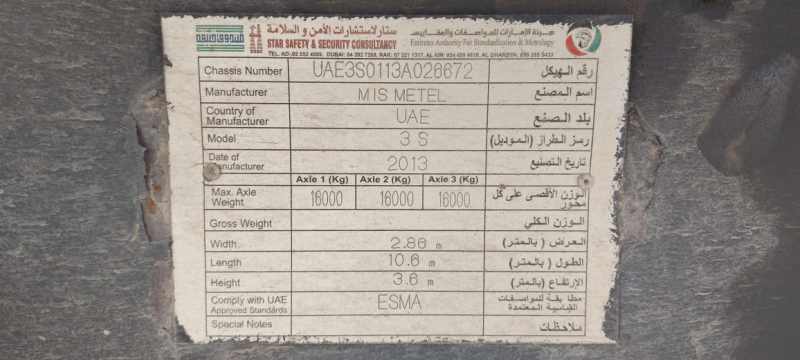 صندوق خليفة
ستار لاستشارات الأمن و السلامة
STAR SAFETY & SECURITY CONSULTANCY
هيئة الإمارات للمواصفات والمقاييس
Emirates Authority For Standardization & Metrology
TEL. AD: 02 552 4888, DUBAI: 04 392 7288, RAH: 07 221 1317, AL AIN:
Chassis Number UAE3S0113A026672 رقم الهيكل
Manufacturer MIS METEL اسم المصنع
Country of Manufacturer UAE بلد الصنع
Model 3 S رمز الطراز (الموديل)
Date of Manufacturer 2013 تاريخ التصنيع
Axle 1 (Kg) Axle 2 (Kg) Axle 3 (Kg)
Max. Axle Weight 16000 16000 16000 الوزن الأقصى على كل محور
Gross Weight الوزن الكلي
Width 2.86 m العرض (بالمتر)
Length 10.6 m الطول (بالمتر)
Height 3.6 m الإرتفاع (بالمتر)
Comply with UAE Approved Standards ESMA مطابقة للمواصفات القياسية المعتمدة
Special Notes ملاحظات